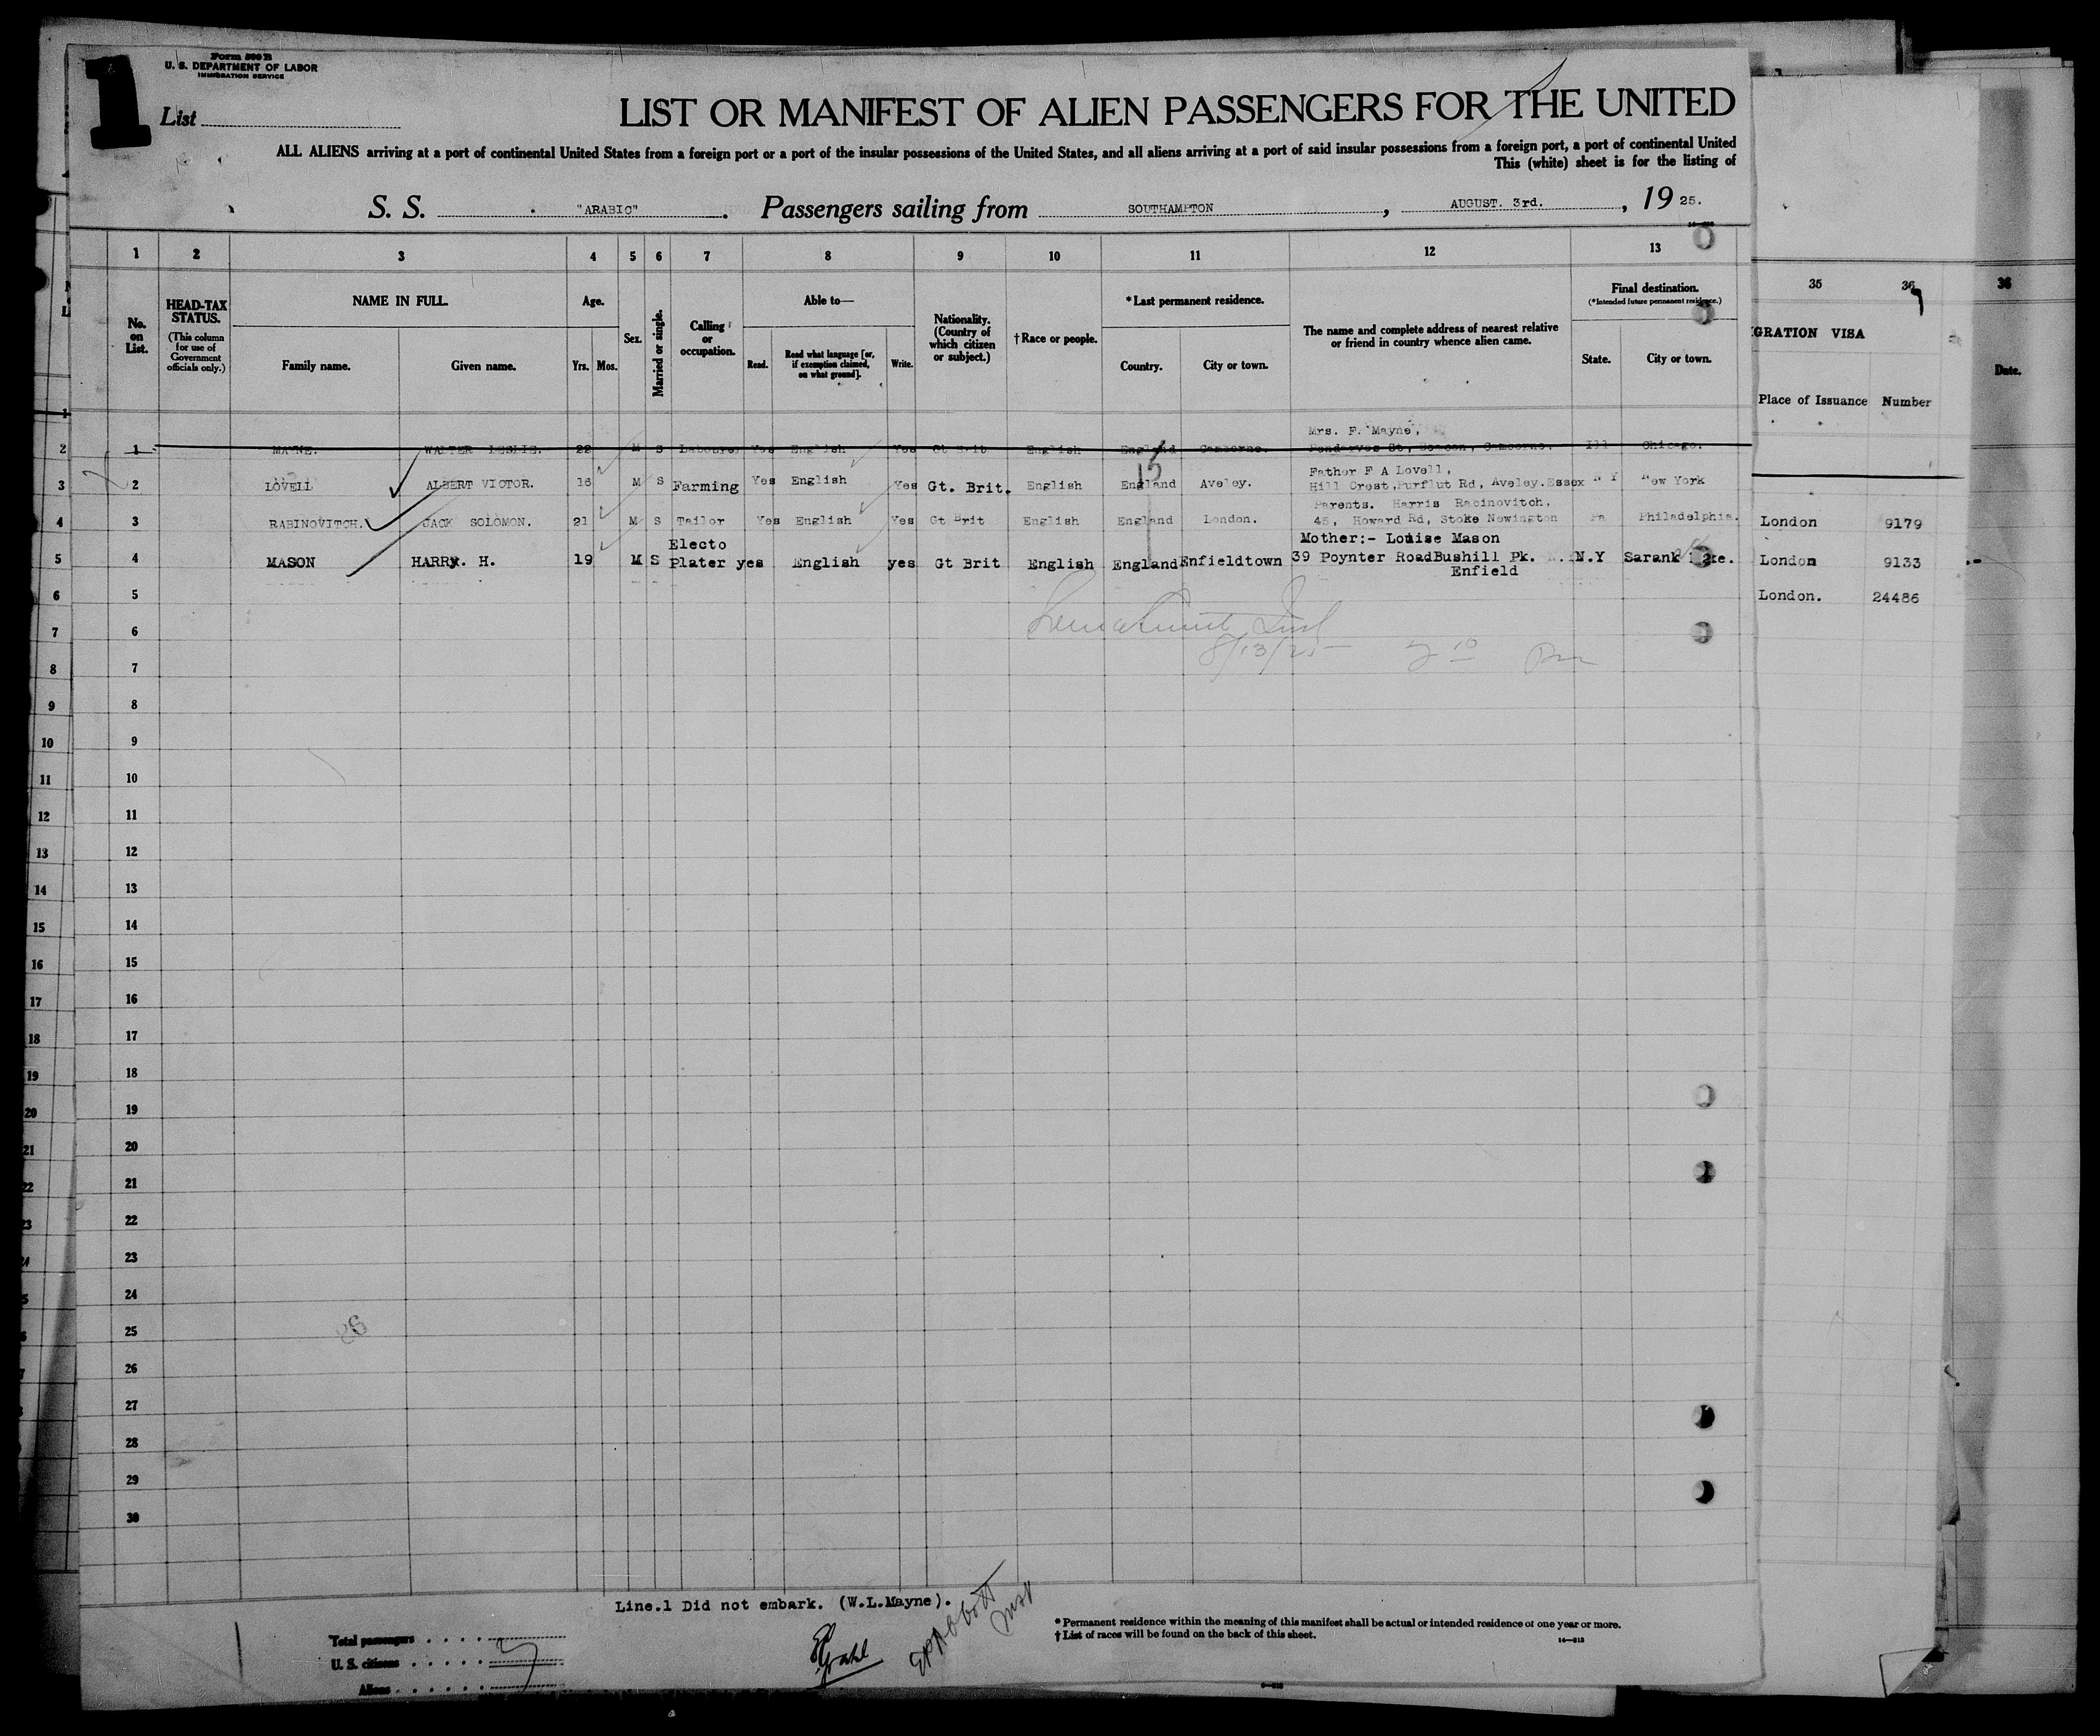 1
Form 500 B
U. S. DEPARTMENT OF LABOR
IMMIGRATION SERVICE
List
LIST OR MANIFEST OF ALIEN PASSENGERS FOR THE UNITED
ALL ALIENS arriving at a port of continental United States from a foreign port or a port of the insular possessions of the United States, and all aliens arriving at a port of said insular possessions from a foreign port, a port of continental United
This (white) sheet is for the listing of
S. S. "ARABIC". Passengers sailing from SOUTHAMPTON, AUGUST. 3rd., 19 25.
1 2 3 4 5 6 7 8 9 10 11 12 13 35 36 36
No. on List.
HEAD-TAX STATUS.
(This column for use of Government officials only.)
NAME IN FULL.
Family name. Given name.
Age.
Yrs. Mos.
Sex.
Married or single.
Calling or occupation.
Able to—
Read. Read what language [or, if exemption claimed, on what ground]. Write.
Nationality. (Country of which citizen or subject.)
†Race or people.
*Last permanent residence.
Country. City or town.
The name and complete address of nearest relative or friend in country whence alien came.
Final destination.
(*Intended future permanent residence.)
State. City or town.
GRATION VISA
Place of Issuance Number
Date.
1 MAYNE. WALTER LESLIE. 22 M S Labourer Yes English Yes Gt Brit English England Camborne. Mrs. F. Mayne, Pendarves St, Beacon, Camborne. Ill Chicago.
2 LOVELL ALBERT VICTOR. 16 M S Farming Yes English Yes Gt. Brit. English England Aveley. Father F A Lovell, Hill Crest, Purflut Rd, Aveley.Essex N Y New York
3 RABINOVITCH. JACK SOLOMON. 21 M S Tailor Yes English Yes Gt Brit English England London. Parents. Harris Rabinovitch, 45, Howard Rd, Stoke Newington Pa Philadelphia. London 9179
4 MASON HARRY. H. 19 M S Electo Plater yes English yes Gt Brit English England Enfieldtown Mother:- Louise Mason 39 Poynter RoadBushill Pk. Enfield N.Y Sarank Lake. London 9133
5 London. 24486
8/13/25
6
7
8
9
10
11
12
13
14
15
16
17
18
19
20
21
22
23
24
25
86
26
27
28
29
30
Line.1 Did not embark. (W.L.Mayne).
Total passengers
U. S. citizens
Aliens
* Permanent residence within the meaning of this manifest shall be actual or intended residence of one year or more.
† List of races will be found on the back of this sheet.
14—813